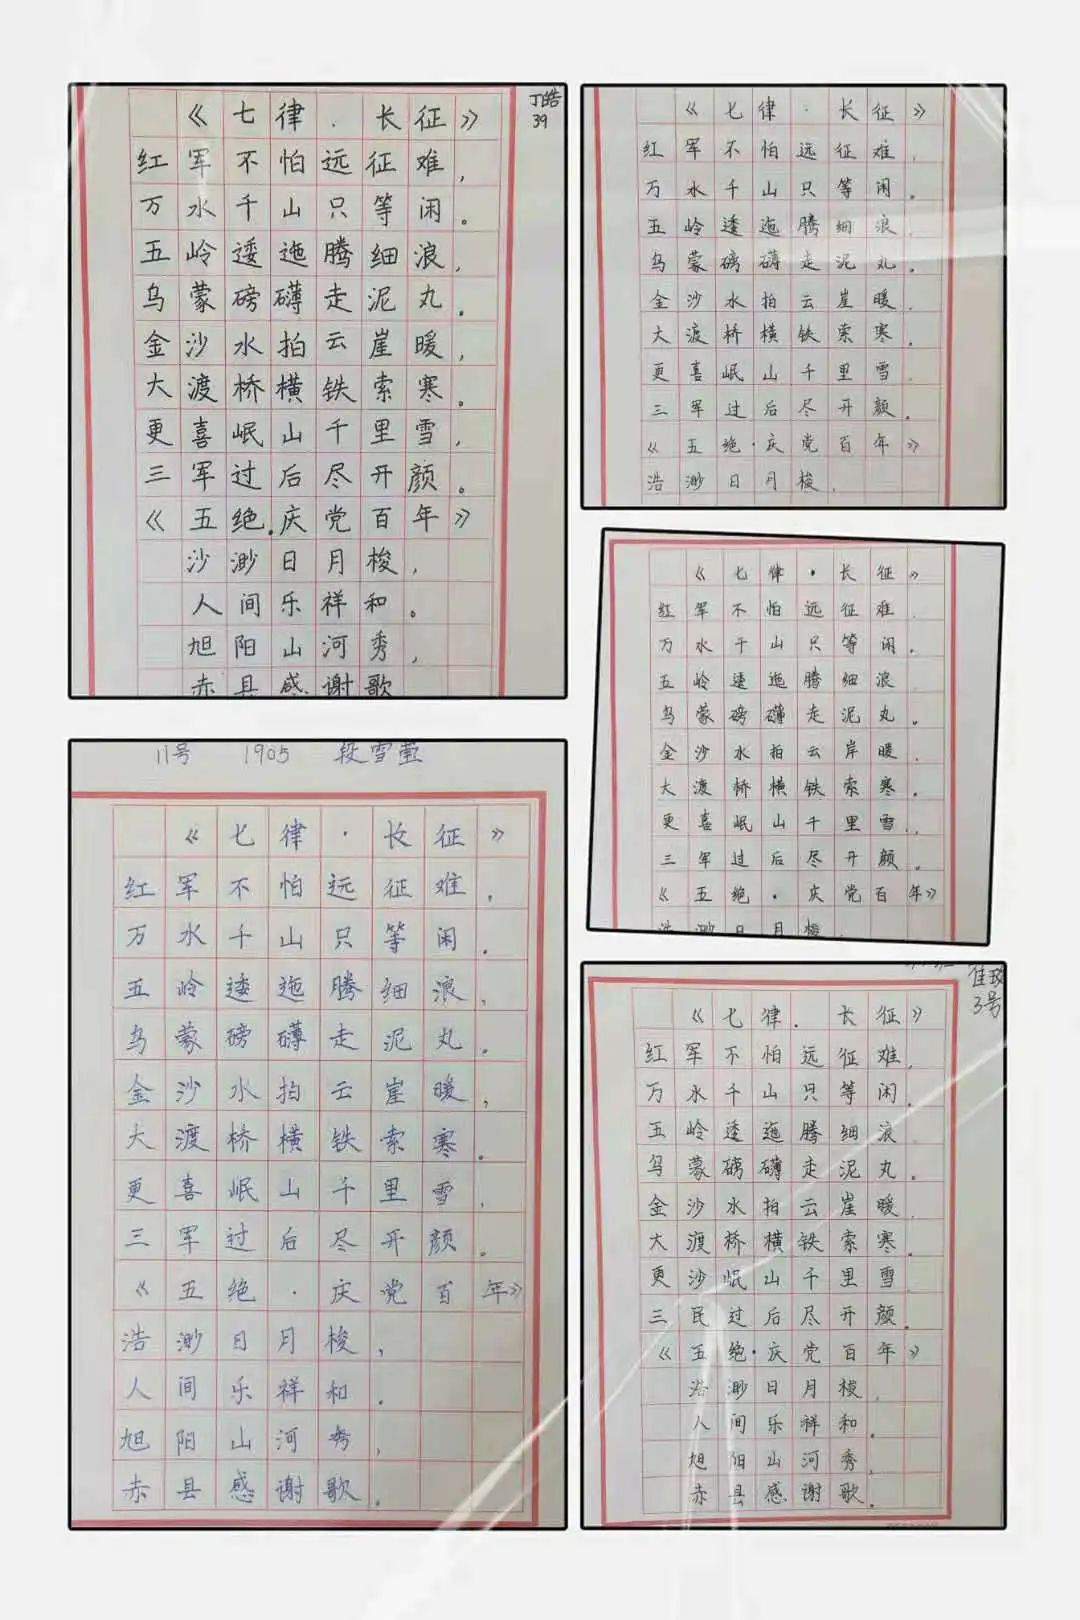 丁皓
39
《七律·长征》
红军不怕远征难，
万水千山只等闲。
五岭逶迤腾细浪，
乌蒙磅礴走泥丸。
金沙水拍云崖暖，
大渡桥横铁索寒。
更喜岷山千里雪，
三军过后尽开颜。
《五绝·庆党百年》
沙渺日月梭，
人间乐祥和。
旭阳山河秀，
赤县感谢歌
《七律·长征》
红军不怕远征难，
万水千山只等闲。
五岭逶迤腾细浪，
乌蒙磅礴走泥丸。
金沙水拍云崖暖，
大渡桥横铁索寒。
更喜岷山千里雪
三军过后尽开颜。
《五绝·庆党百年》
浩渺日月梭，
《七律·长征》
红军不怕远征难，
万水千山只等闲。
五岭逶迤腾细浪
乌蒙磅礴走泥丸。
金沙水拍云岸暖，
大渡桥横铁索寒。
更喜岷山千里雪，
三军过后尽开颜。
《五绝·庆党百年》
浩渺日月梭
11号 1905 段雪萤
《七律·长征》
红军不怕远征难，
万水千山只等闲。
五岭逶迤腾细浪，
乌蒙磅礴走泥丸。
金沙水拍云崖暖，
大渡桥横铁索寒。
更喜岷山千里雪，
三军过后尽开颜。
《五绝·庆党百年》
浩渺日月梭，
人间乐祥和。
旭阳山河秀，
赤县感谢歌。
佳
3号
《七律·长征》
红军不怕远征难，
万水千山只等闲。
五岭逶迤腾细浪，
乌蒙磅礴走泥丸。
金沙水拍云崖暖，
大渡桥横铁索寒。
更沙岷山千里雪
三民过后尽开颜。
《五绝·庆党百年》
浩渺日月梭，
人间乐祥和。
旭阳山河秀，
赤县感谢歌。